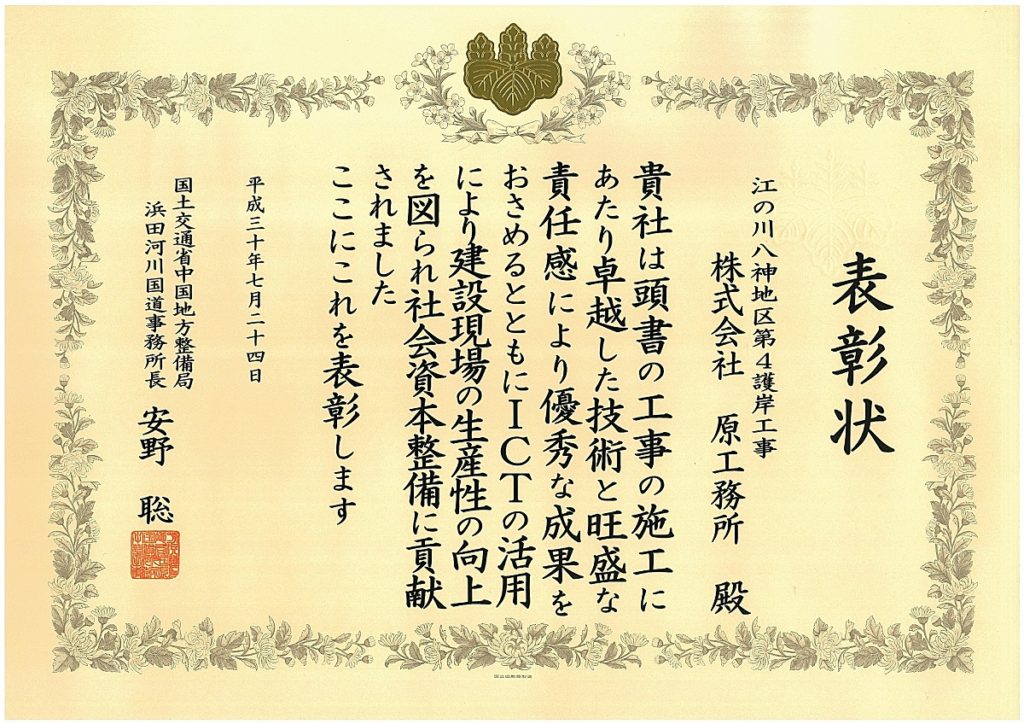 表彰状
江の川八神地区第4護岸工事
株式会社 原工務所 殿
貴社は頭書の工事の施工に
あたり卓越した技術と旺盛な
責任感により優秀な成果を
おさめるとともにICTの活用
により建設現場の生産性の向上
を図られ社会資本整備に貢献
されました
ここにこれを表彰します
平成三十年七月二十四日
国土交通省中国地方整備局
浜田河川国道事務所長 安野 聡